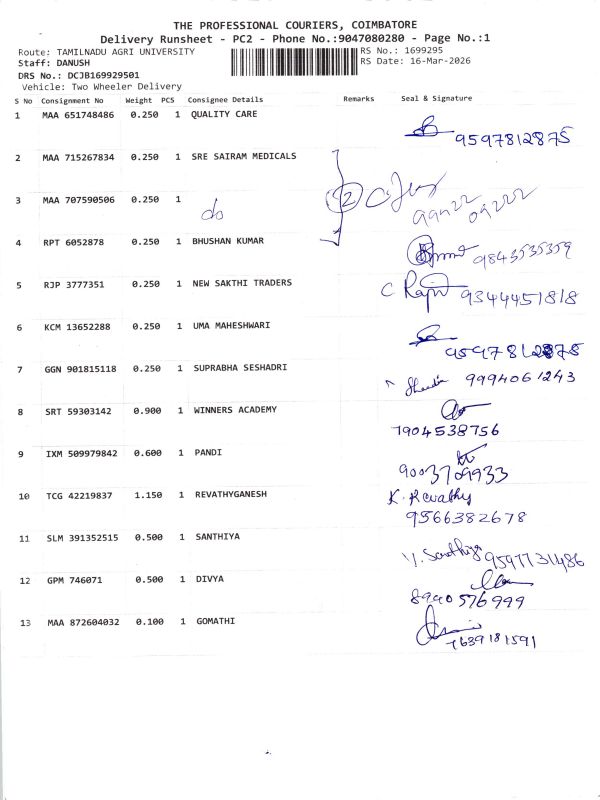 THE PROFESSIONAL COURIERS, COIMBATORE
Delivery Runsheet - PC2 - Phone No.:9047080280 - Page No.:1
Route: TAMILNADU AGRI UNIVERSITY RS No.: 1699295
Staff: DANUSH RS Date: 16-Mar-2026
DRS No.: DCJB169929501
Vehicle: Two Wheeler Delivery
S No Consignment No Weight PCS Consignee Details Remarks Seal & Signature
1 MAA 651748486 0.250 1 QUALITY CARE
9597812875
2 MAA 715267834 0.250 1 SRE SAIRAM MEDICALS
3 MAA 707590506 0.250 1
do 2 99422 09222
4 RPT 6052878 0.250 1 BHUSHAN KUMAR
9843535359
5 RJP 3777351 0.250 1 NEW SAKTHI TRADERS
C Raju 9344451818
6 KCM 13652288 0.250 1 UMA MAHESHWARI
9597812875
7 GGN 901815118 0.250 1 SUPRABHA SESHADRI
9994061243
8 SRT 59303142 0.900 1 WINNERS ACADEMY
7904538756
9 IXM 509979842 0.600 1 PANDI
9003709933
10 TCG 42219837 1.150 1 REVATHYGANESH
K. Revathy
9566382678
11 SLM 391352515 0.500 1 SANTHIYA
V. Santhiya 9597731486
12 GPM 746071 0.500 1 DIVYA
8990576999
13 MAA 872604032 0.100 1 GOMATHI
7639181591